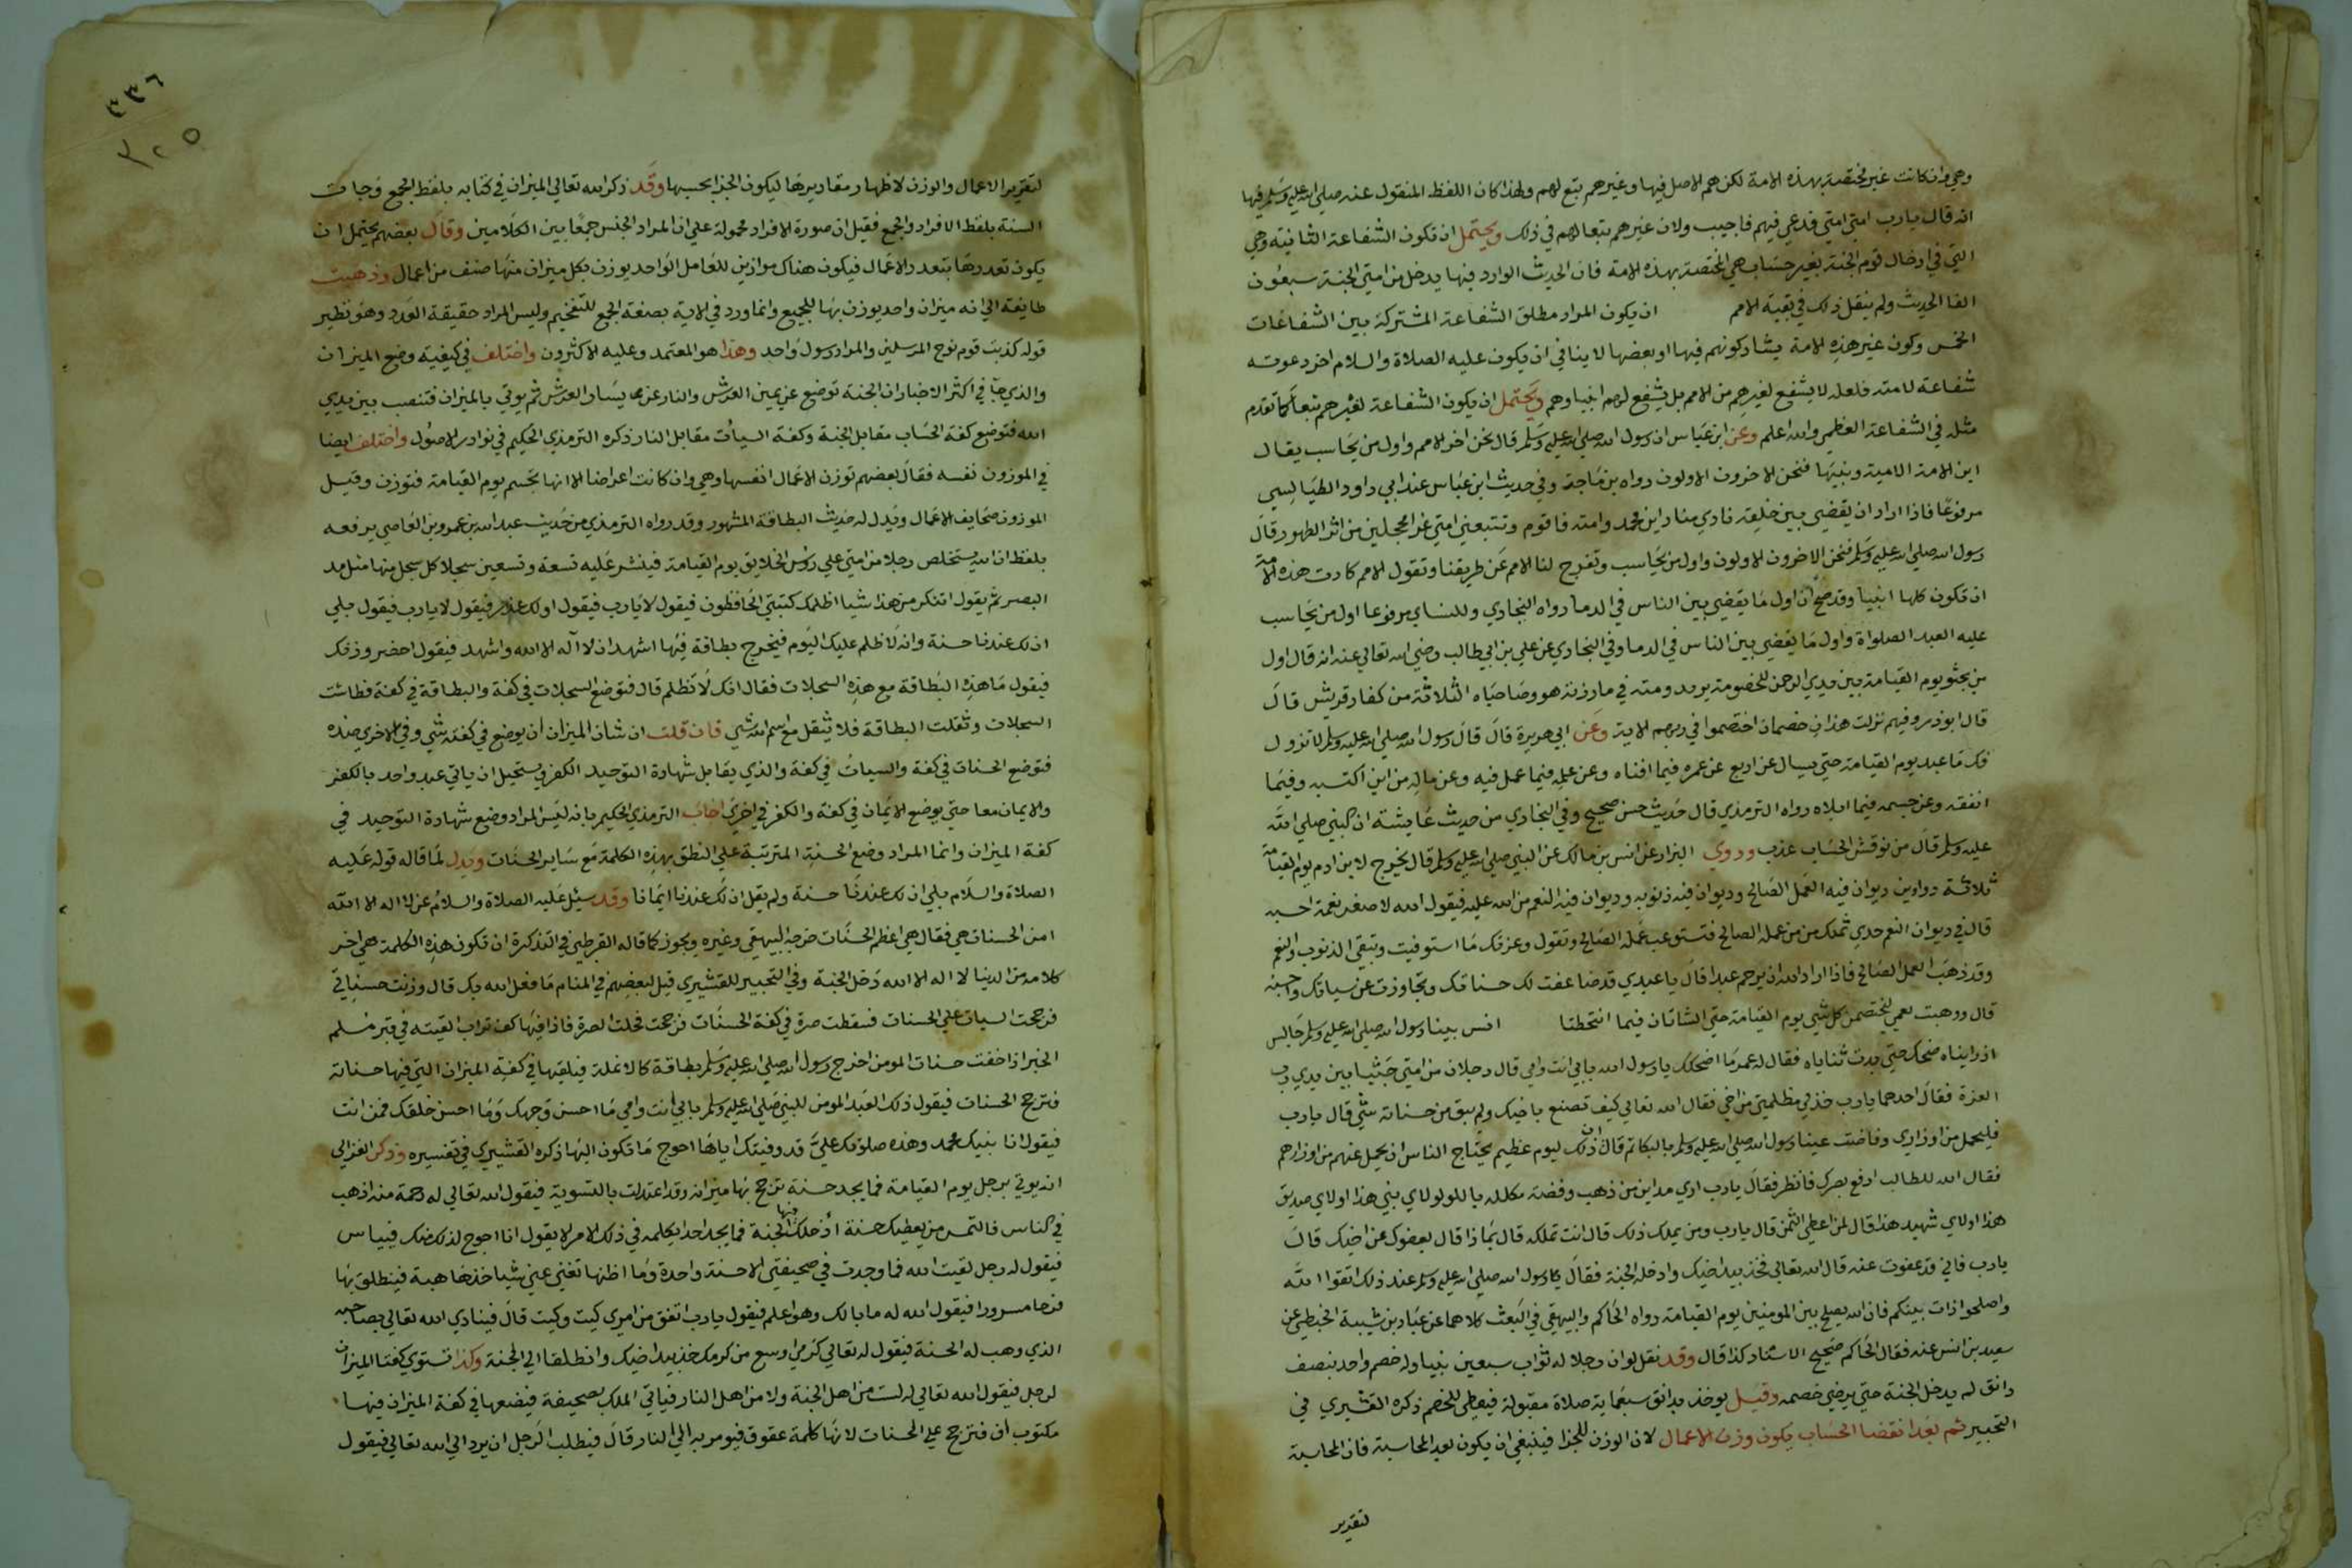 وهي وان كانت غير مختصة بهذه الامة لكن هم الاصل فيها وغيرهم تبع لهم ولهذا كان اللفظ المنقول عنه صلي الله عليه وسلم فيها
انه قال يا رب امتي امتي فدعي فيهم فاجيب ولان غيرهم تبعا لهم في ذلك ويحتمل ان تكون الشفاعة الثانية وهي
التي في ادخال قوم الجنة بغير حساب هي المختصة بهذه الامة فان الحديث الوارد فيها يدخل من امتي الجنة سبعون
الفا الحديث ولم ينقل ذلك في بقية الامم ان يكون المراد مطلق الشفاعة المشتركة بين الشفاعات
الخمس وكون غير هذه الامة يشاركونهم فيها او بعضها لا ينافي ان يكون عليه الصلاة والسلام اخر دعوته
شفاعة لامته فلعله لا يشفع لغيرهم من الامم بل يشفع لهم انبياوهم ويحتمل ان يكون الشفاعة لغيرهم تبعا كما تقدم
مثله في الشفاعة العظمي والله اعلم وعن ابن عباس ان رسول الله صلي الله عليه وسلم قال نحن اخر الامم واول من يحاسب يقال
اين الامة الامية ونبيها فنحن الاخرون الاولون رواه بن ماجة وفي حديث ابن عباس عند ابي داود الطيالسي
مرفوعا فاذا اراد ان يقضي بين خلقه نادي مناد اين محمد وامته فاقوم وتتبعني امتي غرا محجلين من اثر الطهور قال
رسول الله صلي الله عليه وسلم فنحن الاخرون الاولون واول من يحاسب وتفرج لنا الامم عن طريقنا وتقول الامم كادت هذه الامة
ان تكون كلها انبيا وقد صح ان اول ما يقضي بين الناس في الدما رواه البخاري وللنساي مرفوعا اول من يحاسب
عليه العبد الصلواة واول ما يقضي بين الناس في الدما وفي البخاري عن علي بن ابي طالب رضي الله تعالي عنه انه قال اول
من يجثو يوم القيامة بين يدي الرحمن للخصومة يريد ومنه في مارزته هو وصاحباه الثلاثة من كفار قريش قال
قال ابو ذر وفيهم نزلت هذان خصمان اختصموا في ربهم الاية وعن ابي هريرة قال قال رسول الله صلي الله عليه وسلم لا تزول
قدما عبد يوم القيامة حتي يسال عن اربع عن عمره فيما افناه وعن علمه فيما عمل فيه وعن ماله من اين اكتسبه وفيما
انفقه وعن جسمه فيما ابلاه رواه الترمذي قال حديث حسن صحيح وفي البخاري من حديث عايشة ان النبي صلي الله
عليه وسلم قال من نوقش الحساب عذب وروي البزار عن انس بن مالك عن النبي صلي الله عليه وسلم قال يخرج لابن ادم يوم القيامة
ثلاثة دواوين ديوان فيه العمل الصالح وديوان فيه ذنوبه وديوان فيه النعم من الله عليه فيقول الله لاصغر نعمة احسبه
قال في ديوان النعم خدي ثمنك من عمله الصالح فتستوعب عمله الصالح وتقول وعزتك ما استوفيت وتبقي الذنوب والنعم
وقد ذهب العمل الصالح فاذا اراد الله ان يرحم عبدا قال يا عبدي قد ضاعفت لك حسناتك وتجاوزت عن سياتك واحسبه
قال ووهبت نعمي ليختصمن كل شي يوم القيامة حتي الشاتان فيما انتطحتا انس بينا رسول الله صلي الله عليه وسلم جالس
اذ رايناه ضحك حتي بدت ثناياه فقال له عمر ما اضحكك يا رسول الله بابي انت وامي قال رجلان من امتي جثيا بين يدي رب
العزة فقال احدهما يا رب خذ لي مظلمتي من اخي فقال الله تعالي كيف تصنع باخيك ولم يبق من حسناته شي قال يا رب
فليحمل من اوزاري وفاضت عينا رسول الله صلي الله عليه وسلم بالبكا ثم قال ان ذلك ليوم عظيم يحتاج الناس ان يحمل عنهم من اوزارهم
فقال الله للطالب ارفع بصرك فانظر فقال يا رب اري مداين من ذهب وفضة مكللة باللولو لاي نبي هذا او لاي صديق
هذا او لاي شهيد هذا قال لمن اعطي الثمن قال يا رب ومن يملك ذلك قال انت تملكه قال بماذا قال بعفوك عن اخيك قال
يا رب فاني قد عفوت عنه قال الله تعالي فخذ بيد اخيك وادخله الجنة فقال رسول الله صلي الله عليه وسلم عند ذلك اتقوا الله
واصلحوا ذات بينكم فان الله يصلح بين المومنين يوم القيامة رواه الحاكم والبيهقي في البعث كلاهما عن عباد بن شيبة الحبطي عن
سعيد بن انس عنه فقال الحاكم صحيح الاسناد كذا قال وقد نقل لو ان رجلا له ثواب سبعين نبيا وله خصم واحد بنصف
دانق لم يدخل الجنة حتي يرضي خصمه وقيل يوخذ بدانق سبعماية صلاة مقبولة فيعطي للخصم ذكره القشيري في
التحبير ثم بعد انقضا الحساب يكون وزن الاعمال لان الوزن للجزا فينبغي ان يكون بعد المحاسبة فان المحاسبة
لتقدير
٣٣٦
٣٢٥
لتقرير الاعمال والوزن لاظهار مقاديرها ليكون الجزا بحسبها وقد ذكر الله تعالي الميزان في كتابه بلفظ الجمع وجات
السنة بلفظ الافراد والجمع فقيل ان صورة الافراد محمولة علي ان المراد الجنس جمعا بين الكلامين وقال بعضهم يحتمل ان
يكون تعددها بتعدد الاعمال فيكون هناك موازين للعامل الواحد يوزن بكل ميزان منها صنف من اعمال وذهبت
طايفة الي انه ميزان واحد يوزن بها للجميع وانما ورد في الاية بصفة الجمع للتفخيم وليس المراد حقيقة العدد وهو نظير
قوله كذبت قوم نوح المرسلين والمراد رسول واحد وهذا هو المعتمد وعليه الاكثرون واختلف في كيفية وضع الميزان
والذي جا في اكثر الاخبار ان الجنة توضع عن يمين العرش والنار عن يسار العرش ثم يوتي بالميزان فتنصب بين يدي
الله فتوضع كفة الحساب مقابل الجنة وكفة السيات مقابل النار ذكره الترمذي الحكيم في نوادر الاصول واختلف ايضا
في الموزون نفسه فقال بعضهم توزن الاعمال انفسها وهي وان كانت اعراضا الا انها تجسم يوم القيامة فتوزن وقيل
الموزون صحايف الاعمال ويدل له حديث البطاقة المشهور وقد رواه الترمذي من حديث عبد الله بن عمرو بن العاصي يرفعه
بلفظ ان الله يستخلص رجلا من امتي علي روس الخلايق يوم القيامة فينشر عليه تسعة وتسعين سجلا كل سجل منها مثل مد
البصر ثم يقول اتنكر من هذا شيا اظلمك كتبتي الحافظون فيقول لا يارب فيقول اولك عذر فيقول لا يارب فيقول بلي
ان لك عندنا حسنة وانه لا ظلم عليك اليوم فيخرج بطاقة فيها اشهد ان لا اله الا الله واشهد فيقول احضر وزنك
فيقول ما هذه البطاقة مع هذه السجلات فقال انك لا تظلم قال فتوضع السجلات في كفة والبطاقة في كفة فطاشت
السجلات وثقلت البطاقة فلا يثقل مع اسم الله شي فان قلت ان شان الميزان ان يوضع في كفته شي وفي الاخري ضده
فتوضع الحسنات في كفة والسيات في كفة والذي يقابل شهادة التوحيد الكفر ويستحيل ان ياتي عبد واحد بالكفر
والايمان معا حتي يوضع الايمان في كفة والكفر في اخري اجاب الترمذي الحكيم بانه ليس المراد وضع شهادة التوحيد في
كفة الميزان وانما المراد وضع الحسنة المترتبة علي النطق بهذه الكلمة مع ساير الحسنات ويدل لما قاله قوله عليه
الصلاة والسلام بلي ان لك عندنا حسنة ولم يقل ان لك عندنا ايمانا وقد سيل عليه الصلاة والسلام عن لا اله الا الله
امن الحسنات هي فقال هي اعظم الحسنات خرجه البيهقي وغيره ويجوز كما قاله القرطبي في التذكرة ان تكون هذه الكلمة هي اخر
كلامه من الدنيا لا اله الا الله دخل الجنة وفي التحبير للقشيري قيل لبعضهم في المنام ما فعل الله بك قال وزنت حسناتي
فرجحت السيات علي الحسنات فسقطت صرة في كفة الحسنات فرجحت فحلت الصرة فاذا فيها كف تراب القيته في قبر مسلم
الخبر اذا خفت حسنات المومن اخرج رسول الله صلي الله عليه وسلم بطاقة كالانملة فيلقيها في كفة الميزان التي فيها حسناته
فترجح الحسنات فيقول ذلك العبد المومن للنبي صلي الله عليه وسلم بابي انت وامي ما احسن وجهك وما احسن خلقك فمن انت
فيقول انا نبيك محمد وهذه صلوتك علي قد وفيتك اياها احوج ما تكون اليها ذكره القشيري في تفسيره وذكر الغزالي
انه يوتي برجل يوم القيامة فما يجد حسنة ترجح بها ميزانه وقد اعتدلت بالتسوية فيقول الله تعالي له رحمة منه اذهب
في الناس فالتمس من يعطيك حسنة ادخلك بها الجنة فما يجد احدا يكلمه في ذلك الامر الا يقول انا احوج لذلك منك فيياس
فيقول له رجل لقيت الله فما وجدت في صحيفتي الا حسنة واحدة وما اظنها تغني عني شيا خذها هبة فينطلق بها
فرحا مسرورا فيقول الله له ما بالك وهو اعلم فيقول يا رب اتفق من امري كيت وكيت قال فينادي الله تعالي بصاحبه
الذي وهب له الحسنة فيقول له تعالي كرمي اوسع من كرمك خذ بيد اخيك وانطلقا الي الجنة وكذا تستوي كفتا الميزان
لرجل فيقول الله تعالي له لست من اهل الجنة ولا من اهل النار فياتي الملك بصحيفة فيضعها في كفة الميزان فيها
مكتوب اف فترجح علي الحسنات لانها كلمة عقوق فيومر به الي النار قال فيطلب الرجل ان يرد الي الله تعالي فيقول